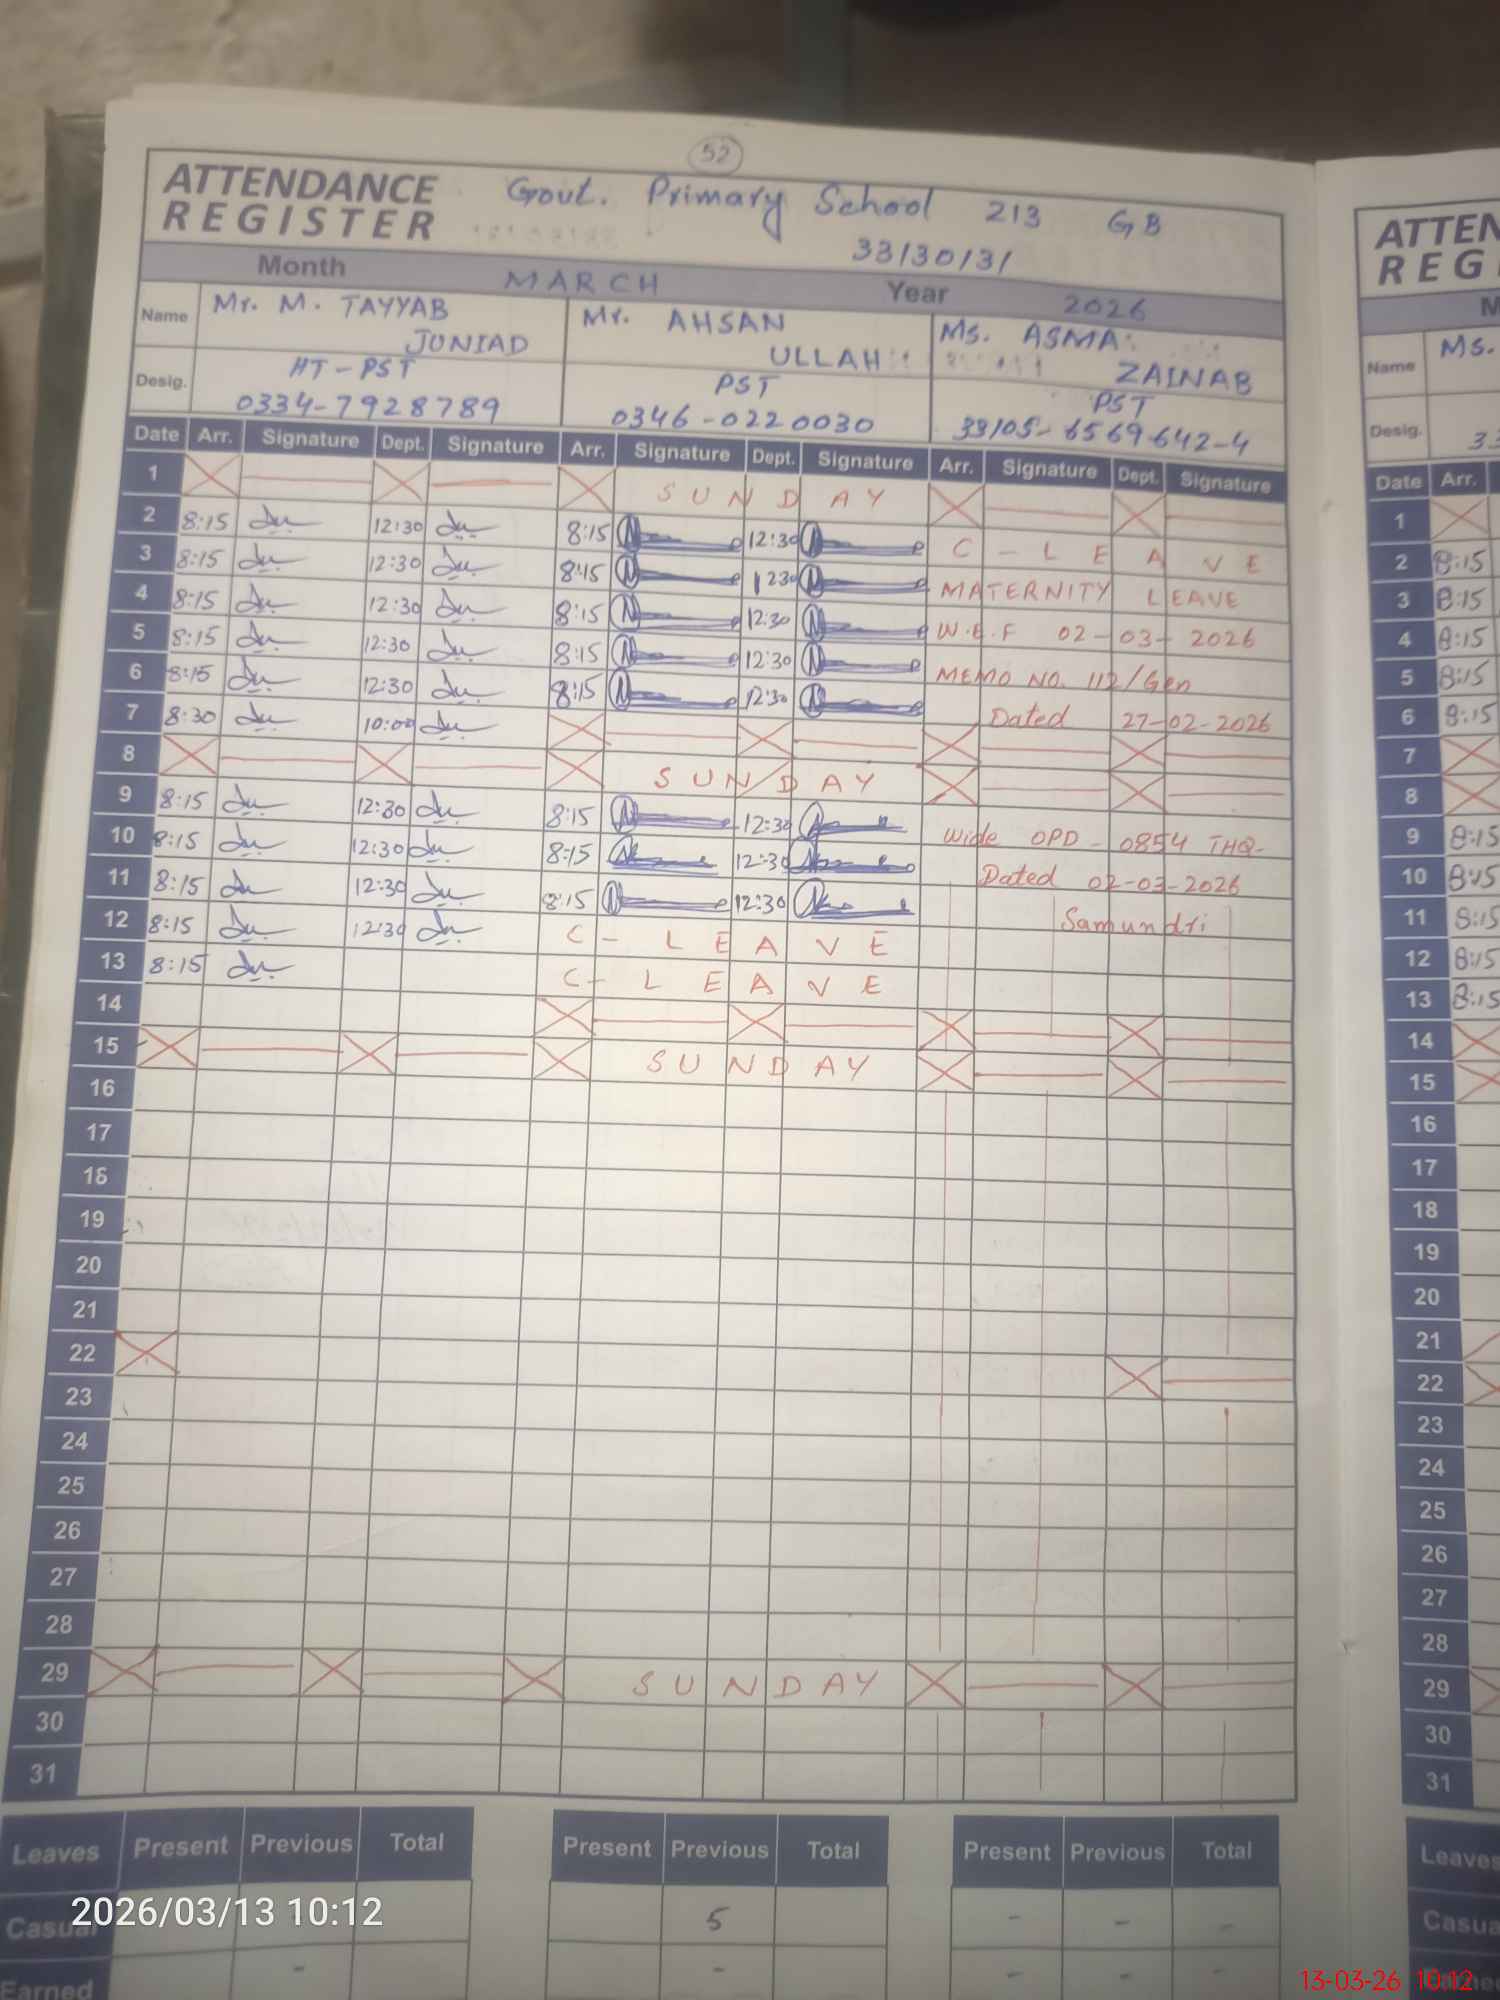 52
ATTENDANCE
REGISTER
Govt. Primary School 213 GB
33130131
Month MARCH Year 2026
Name Mr. M. TAYYAB JUNIAD Mr. AHSAN ULLAH Ms. ASMA ZAINAB
Desig. HT-PST PST PST
0334-7928789 0346-0220030 33105-6569642-4
Date Arr. Signature Dept. Signature Arr. Signature Dept. Signature Arr. Signature Dept. Signature
1 SUNDAY
2 8:15 12:30 8:15 12:30 C-LEAVE
3 8:15 12:30 8:15 1230 MATERNITY LEAVE
4 8:15 12:30 8:15 12:30 W.E.F 02-03-2026
5 8:15 12:30 8:15 12:30 MEMO NO. 112/Gen
6 8:15 12:30 8:15 12:30 Dated 27-02-2026
7 8:30 10:00
8 SUNDAY
9 8:15 12:30 8:15 12:30 Wide OPD-0854 THQ-
10 8:15 12:30 8:15 12:30 Dated 02-03-2026
11 8:15 12:30 8:15 12:30 Samundri
12 8:15 12:30 C-LEAVE
13 8:15 C-LEAVE
14
15 SUNDAY
16
17
18
19
20
21
22
23
24
25
26
27
28
29 SUNDAY
30
31
Leaves Present Previous Total Present Previous Total Present Previous Total
Casual 5 - - -
Earned - - - - -
2026/03/13 10:12
ATTEN
REG
M
Name Ms.
Desig. 33
Date Arr.
1
2 8:15
3 8:15
4 8:15
5 8:15
6 8:15
7
8
9 8:15
10 8:15
11 8:15
12 8:15
13 8:15
14
15
16
17
18
19
20
21
22
23
24
25
26
27
28
29
30
31
Leaves
Casua
13-03-26 10:12